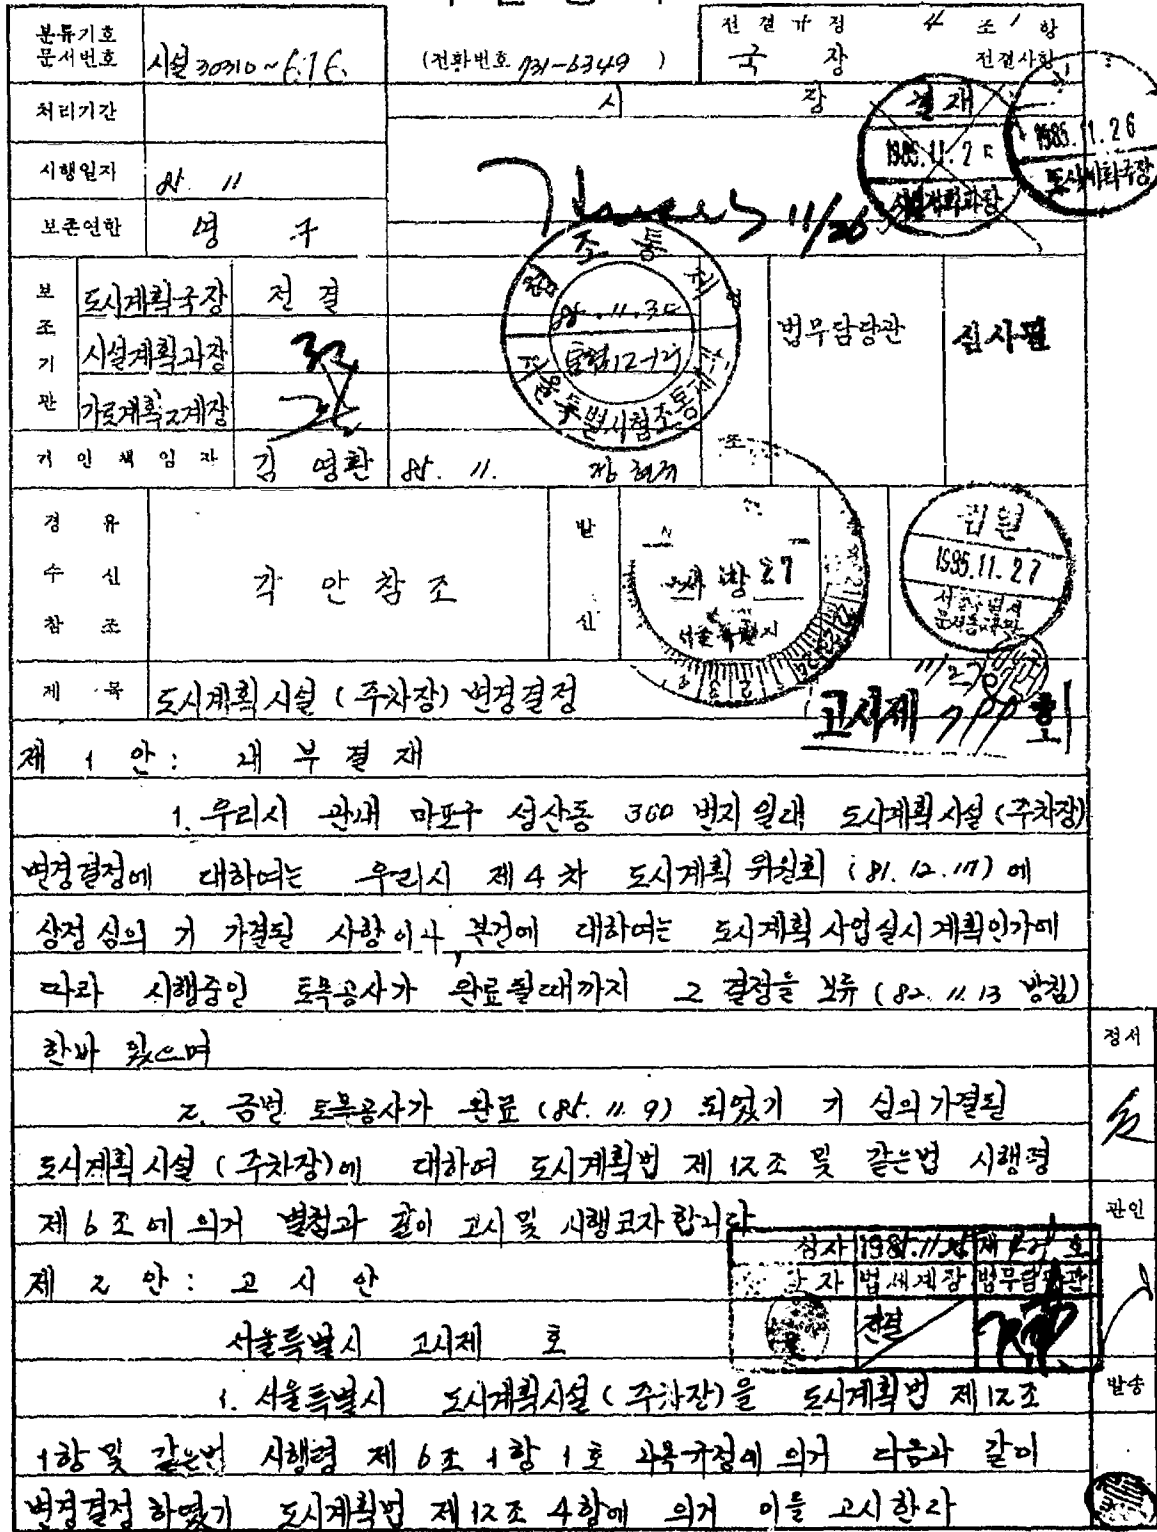 분류기호 문서번호 시설 30310~616 (전화번호 731-6349) 전결규정 4 조 1 항
국 장 전결사항
처리기간 시 장 결재
1985.11.26
도시계획국장
시행일자 85. 11
시설계획과장
11/26
보존연한 영 구
보조기관 도시계획국장 전결 법무담당관 심사필
시설계획과장
가로계획계장
85.11.30
서울특별시협조통제
기안책임자 김영환 85. 11.
경유 수신 참조 각 안 참조 발신
27
서울특별시
1985.11.27
11/27
제 목 도시계획시설 (주차장) 변경결정
고시제 호
제 1 안 : 내부결재
1. 우리시 관내 마포구 성산동 360 번지 일대 도시계획시설 (주차장)
변경결정에 대하여는 우리시 제4차 도시계획위원회 (81. 12. 17) 에
상정 심의 기 가결된 사항이나 본건에 대하여는 도시계획사업실시계획인가에
따라 시행중인 토목공사가 완료될때까지 그 결정을 보류 (82. 11. 13 방침)
한바 있으며
정서
2. 금번 토목공사가 완료 (85. 11. 9) 되었기 기 심의가결된
도시계획시설 (주차장)에 대하여 도시계획법 제12조 및 같은법 시행령
제6조에 의거 별첨과 같이 고시 및 시행코자 합니다
관인
심사 제 호
자 법제계장 법무담당관
전결
제 2 안 : 고시안
서울특별시 고시제 호
발송
1. 서울특별시 도시계획시설 (주차장)을 도시계획법 제12조
1항 및 같은법 시행령 제6조 1항 1호 규정에 의거 다음과 같이
변경결정 하였기 도시계획법 제12조 4항에 의거 이를 고시한다